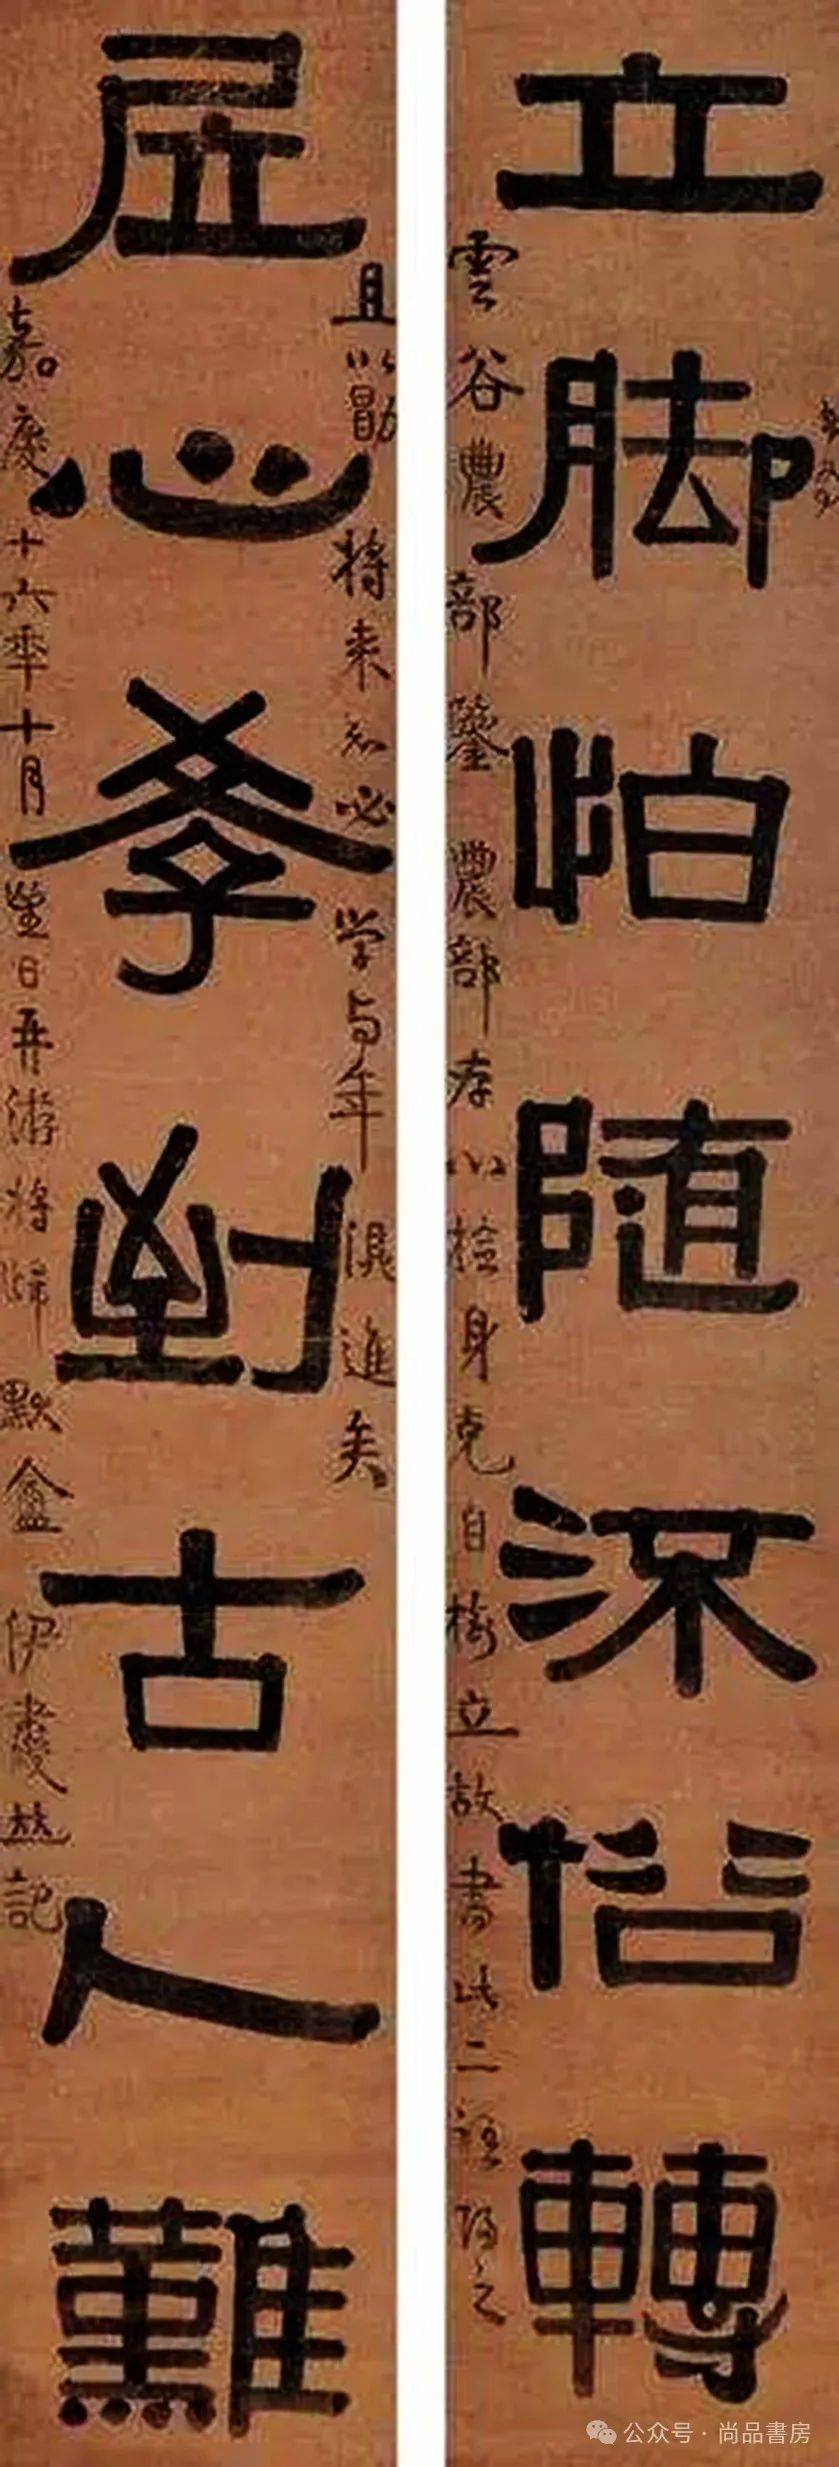 立脚怕随流俗轉
雲谷農部鑒 農部存以檢身克自樹立故書此二語之
居心學到古人難
且以勖將来知必学与年俱進矣
嘉慶十六年十月望日游將歸默盦伊秉綬並記
公众号·尚品書房